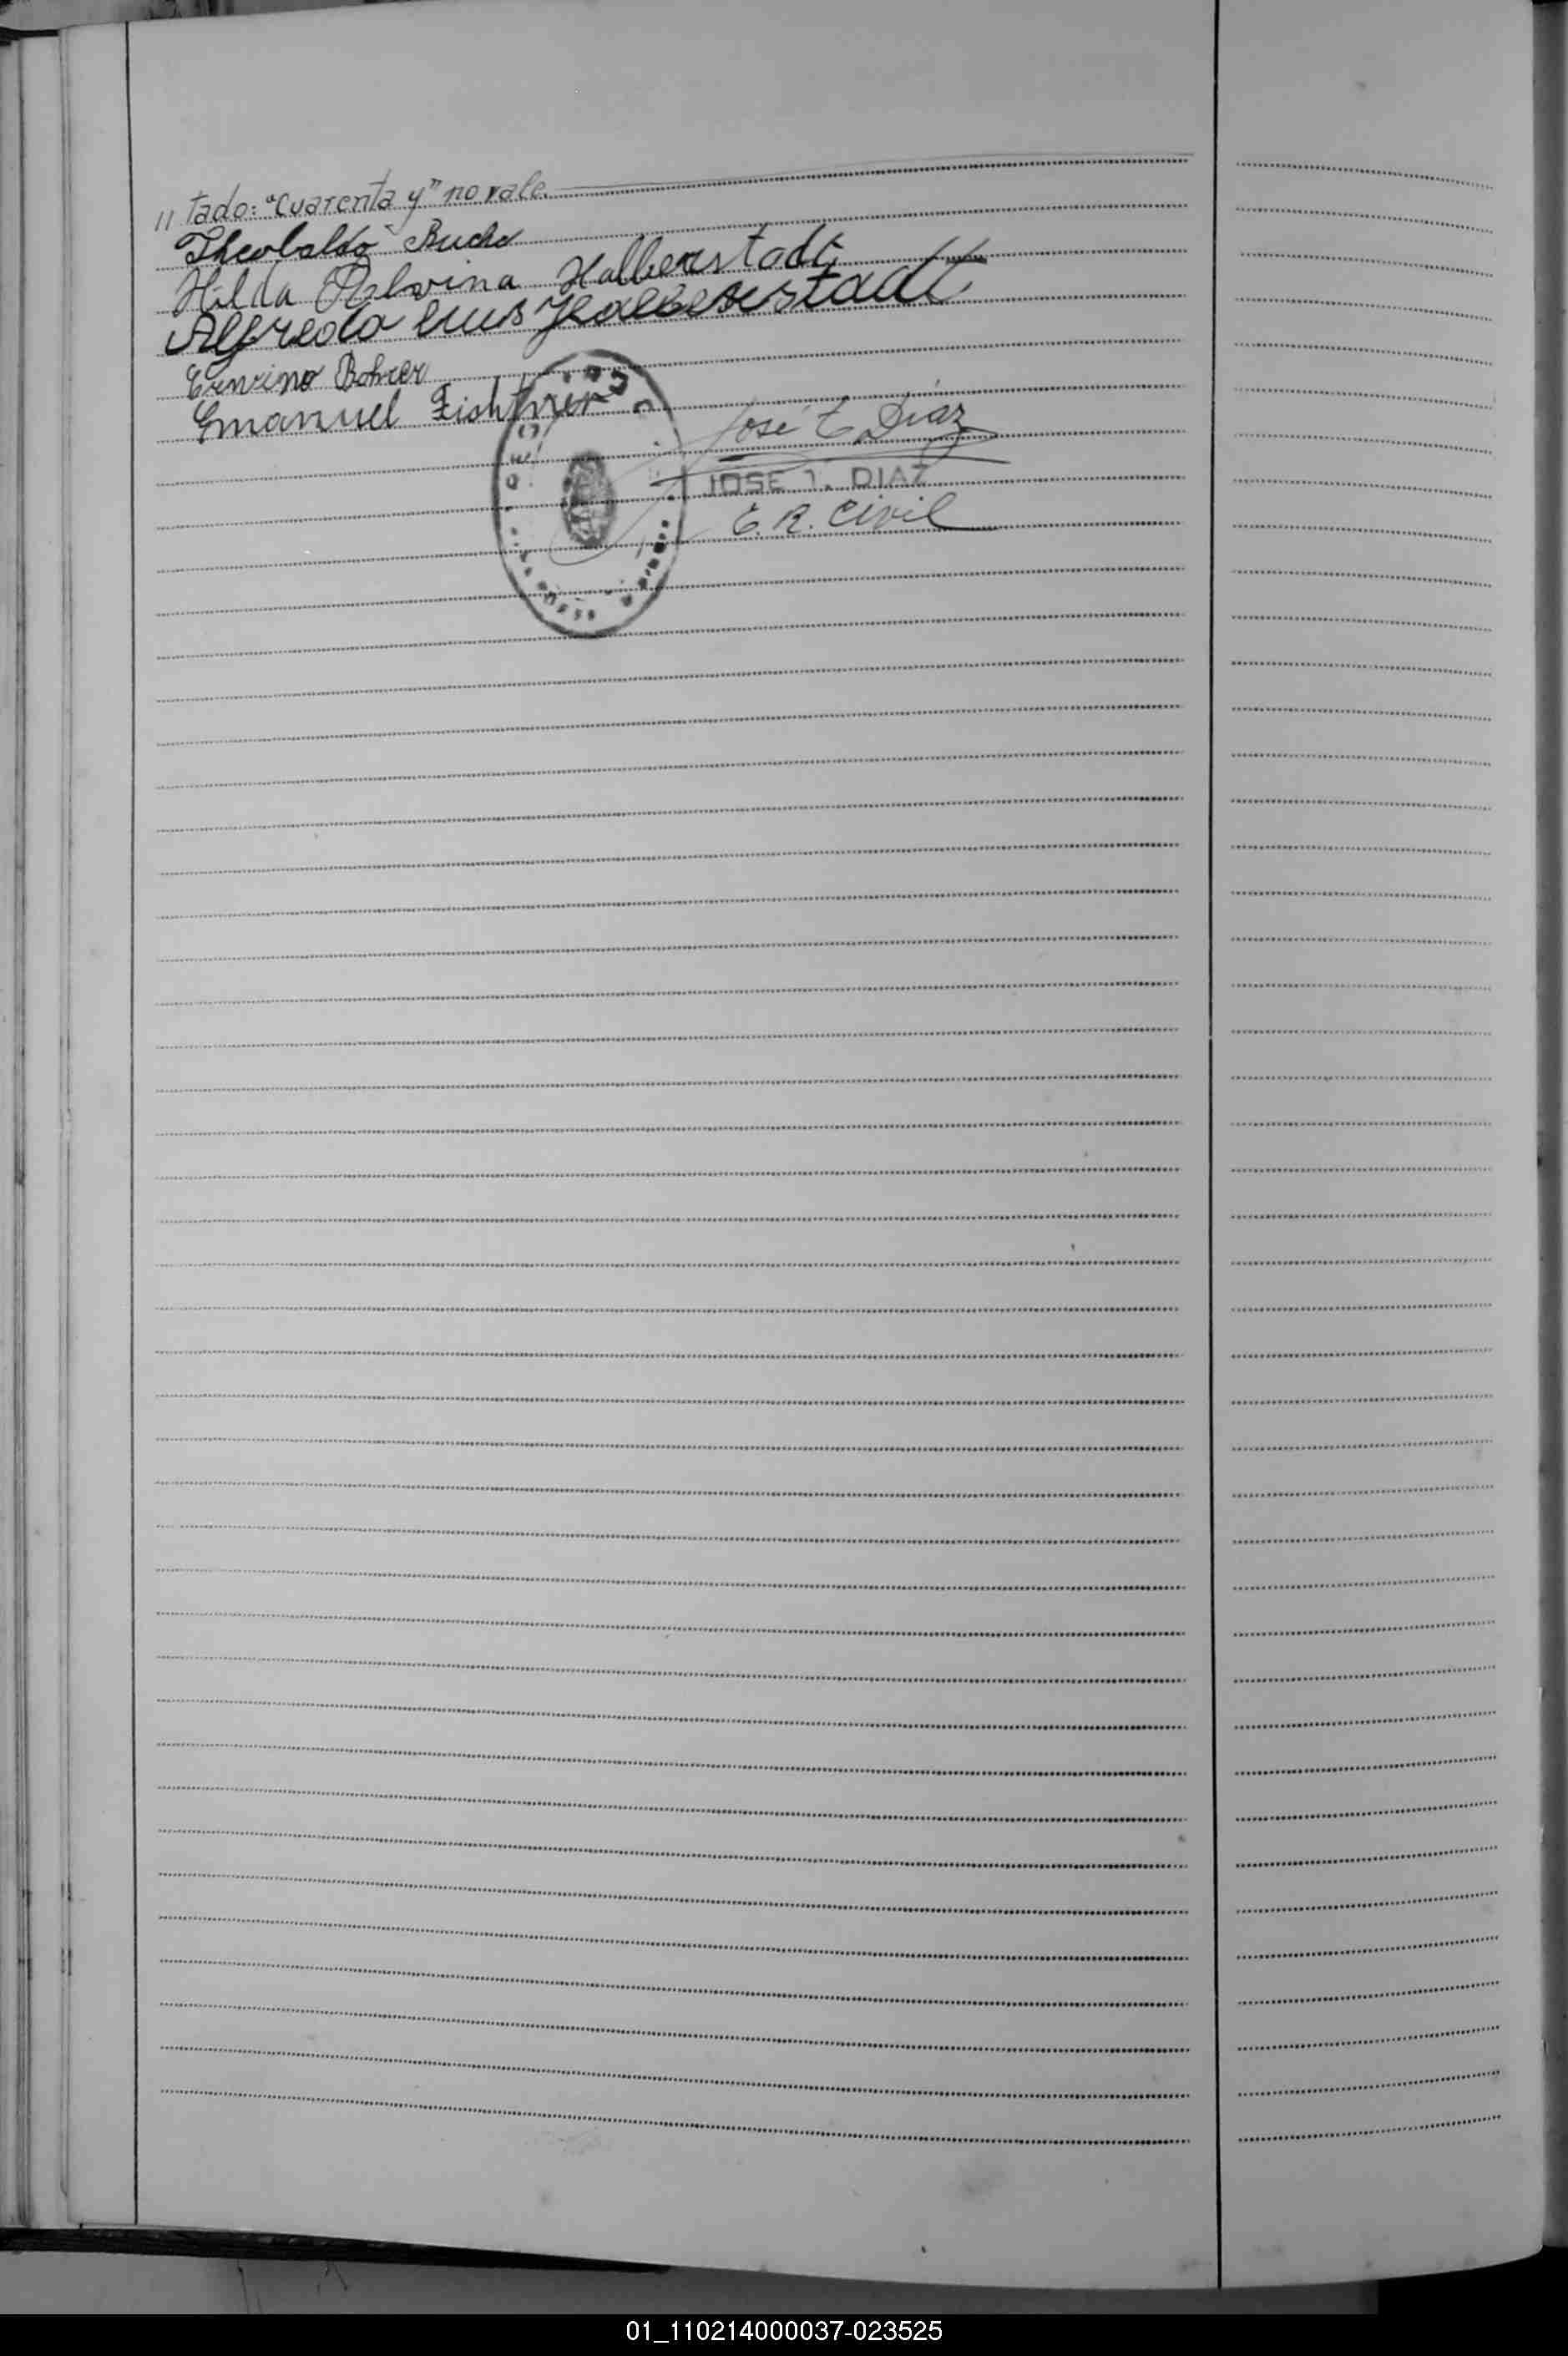 // tado: "Cuarenta y" no vale.
Theobaldo Buche
Hilda Malvina Halberstadt
Alfredo Luis Halberstadt
Erwino Bohrer
Emanuel Fichtner
José T Díaz
JOSE T. DIAZ
E. R. Civil
01_110214000037-023525